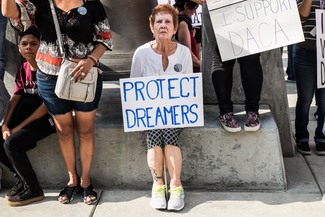 I SUPPORT
DACA
PROTECT
DREAMERS